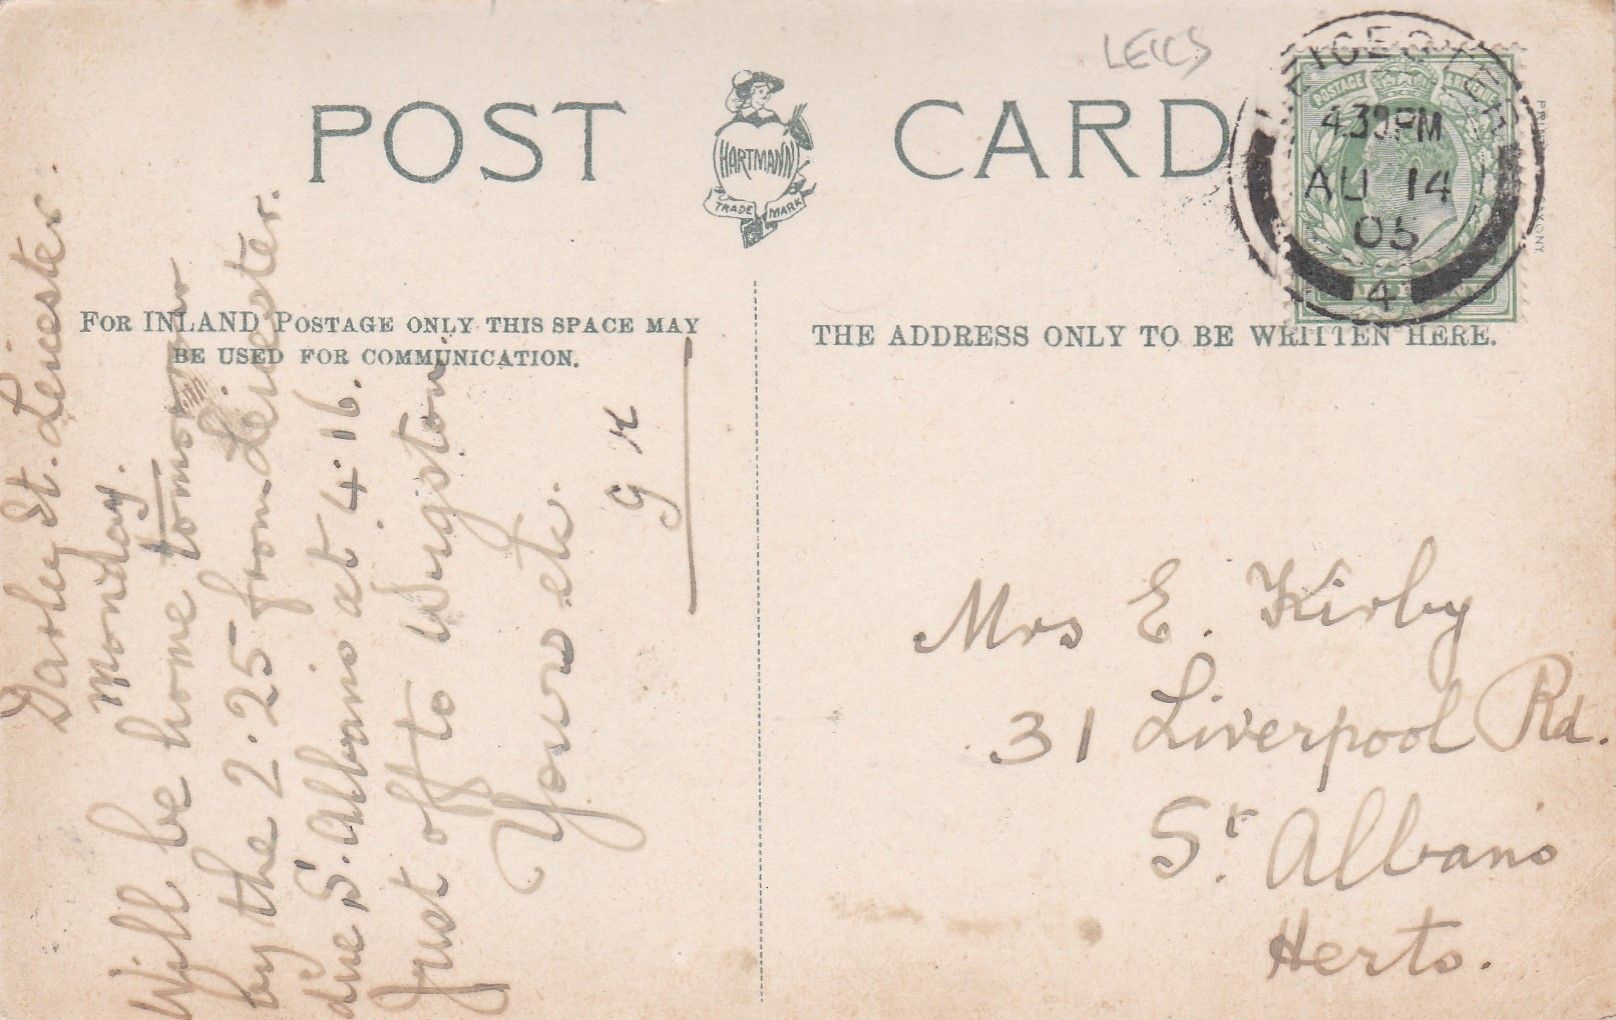 LEICS
POST CARD
HARTMANN
TRADE MARK
LEICESTER
4.39PM
AU 14
05
4
POSTAGE REVENUE
FOR INLAND POSTAGE ONLY THIS SPACE MAY
BE USED FOR COMMUNICATION.
THE ADDRESS ONLY TO BE WRITTEN HERE.
Darley St. Leicester.
Monday.
Will be home tomorrow
by the 2.25 from Leicester.
due St. Albans at 4.16.
Just off to Wigston.
Yours etc.
G K
Mrs E. Kirby
31 Liverpool Rd.
St. Albans
Herts.